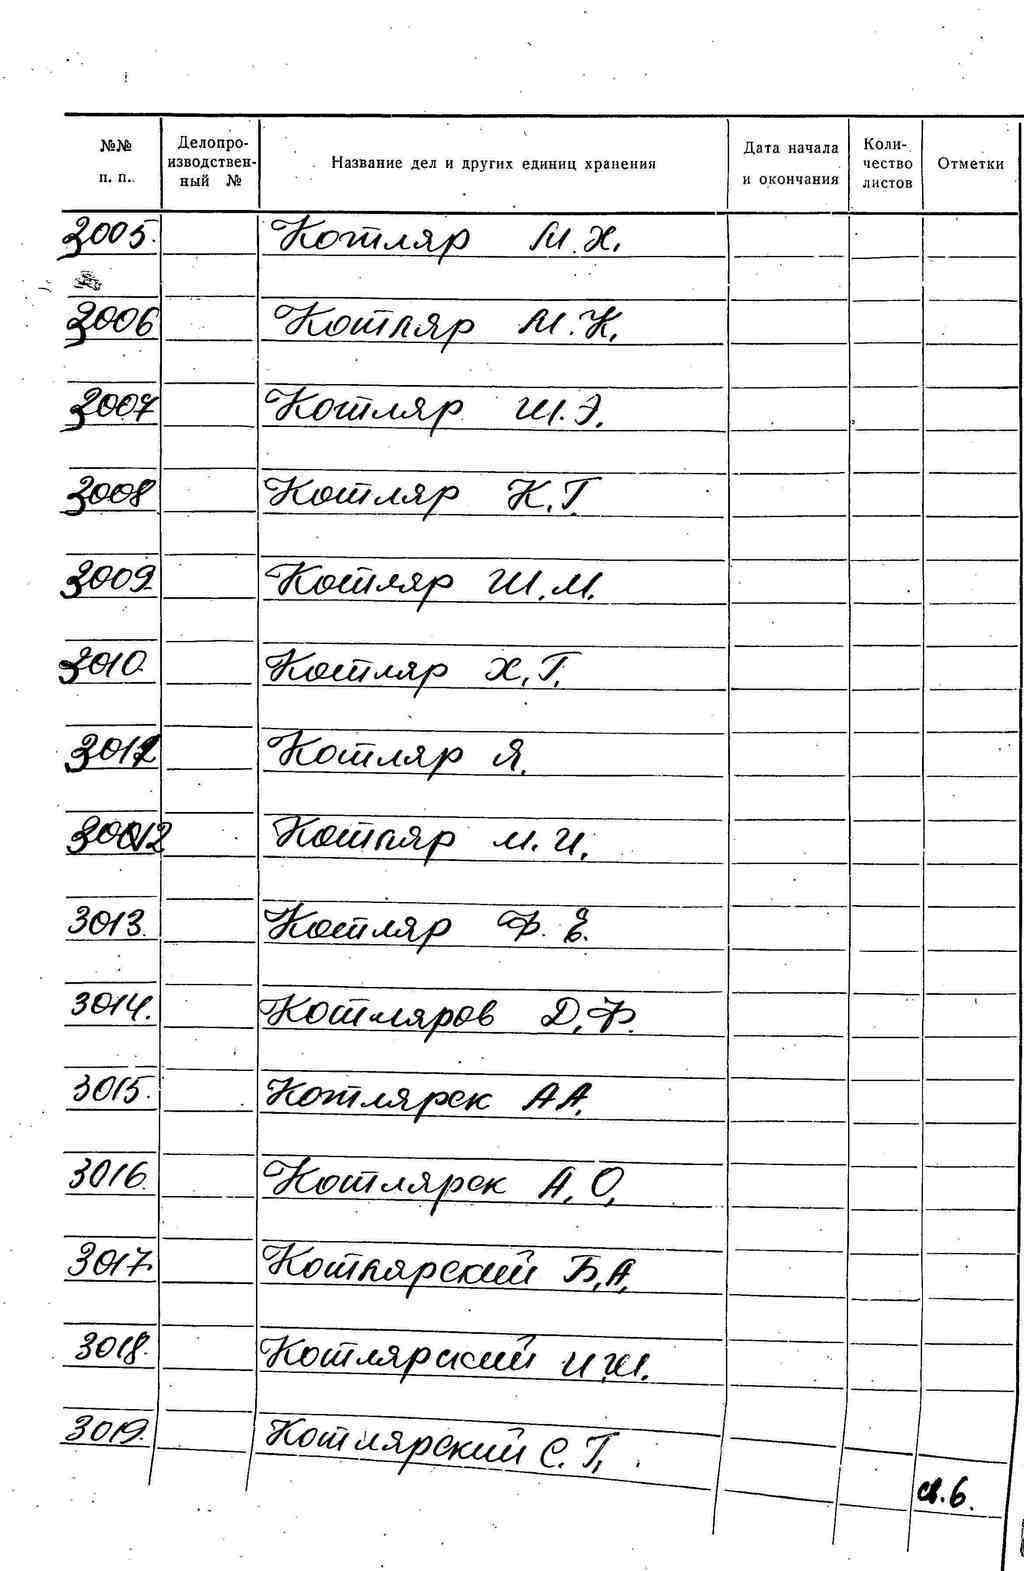 №№ п. п. Делопроизводственный № Название дел и других единиц хранения Дата начала и окончания Количество листов Отметки
3005. Котляр М. Х.
3006 Котляр М. К.
3007 Котляр Ш. Э.
3008 Котляр К. Г.
3009. Котляр Ш. М.
3010. Котляр Х. Г.
Котляр Я.
Котляр М. И.
3013. Котляр Ф. Е.
3014. Котляров Д. Ф.
3015. Котлярек А А.
3016. Котлярек А. О.
3017. Котлярский Б. А.
3018. Котлярский И. Ш.
3019. Котлярский С. Г.
св. 6.